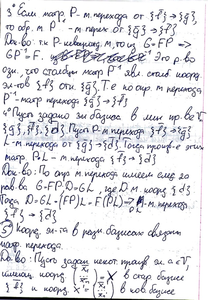 3° Если матр. P - м. перехода от {f} → {g},
то обр. м. P⁻¹ - м. перех. от {g} → {f}
Док-во: т.к. P - невырожд. м, то из G=FP ⇒
GP⁻¹=F. Это р-во
озн., что столбцы матр P⁻¹ явл. столб. коорд.
эл-тов {f} отн. {g}. Т.е. по опр. м. перехода
P⁻¹ - матр перехода {g} → {f}
4° Пусть задано 3и базиса в лин. пр-ве V
{g}, {f}, {d}. Пусть P - м. перехода {f} → {g}
L - м. перехода от {g} → {d}. Тогда
матр PL - м. перехода {f} → {d}
Док-во: По опр. м. перехода имеем след 20
рав-ва G=FP, D=GL, где D - м. коорд {d}
Тогда D=GL=(FP)L=F(PL) ⇒ PL - м. перехода
{f} → {d}
5° коорд. эл-та в разн базисах связаны
матр. перехода.
Док-во: Пусть задан некот эл. x∈V,
имеющ. коорд = X в стар базисе
{f} и коорд в нов базисе